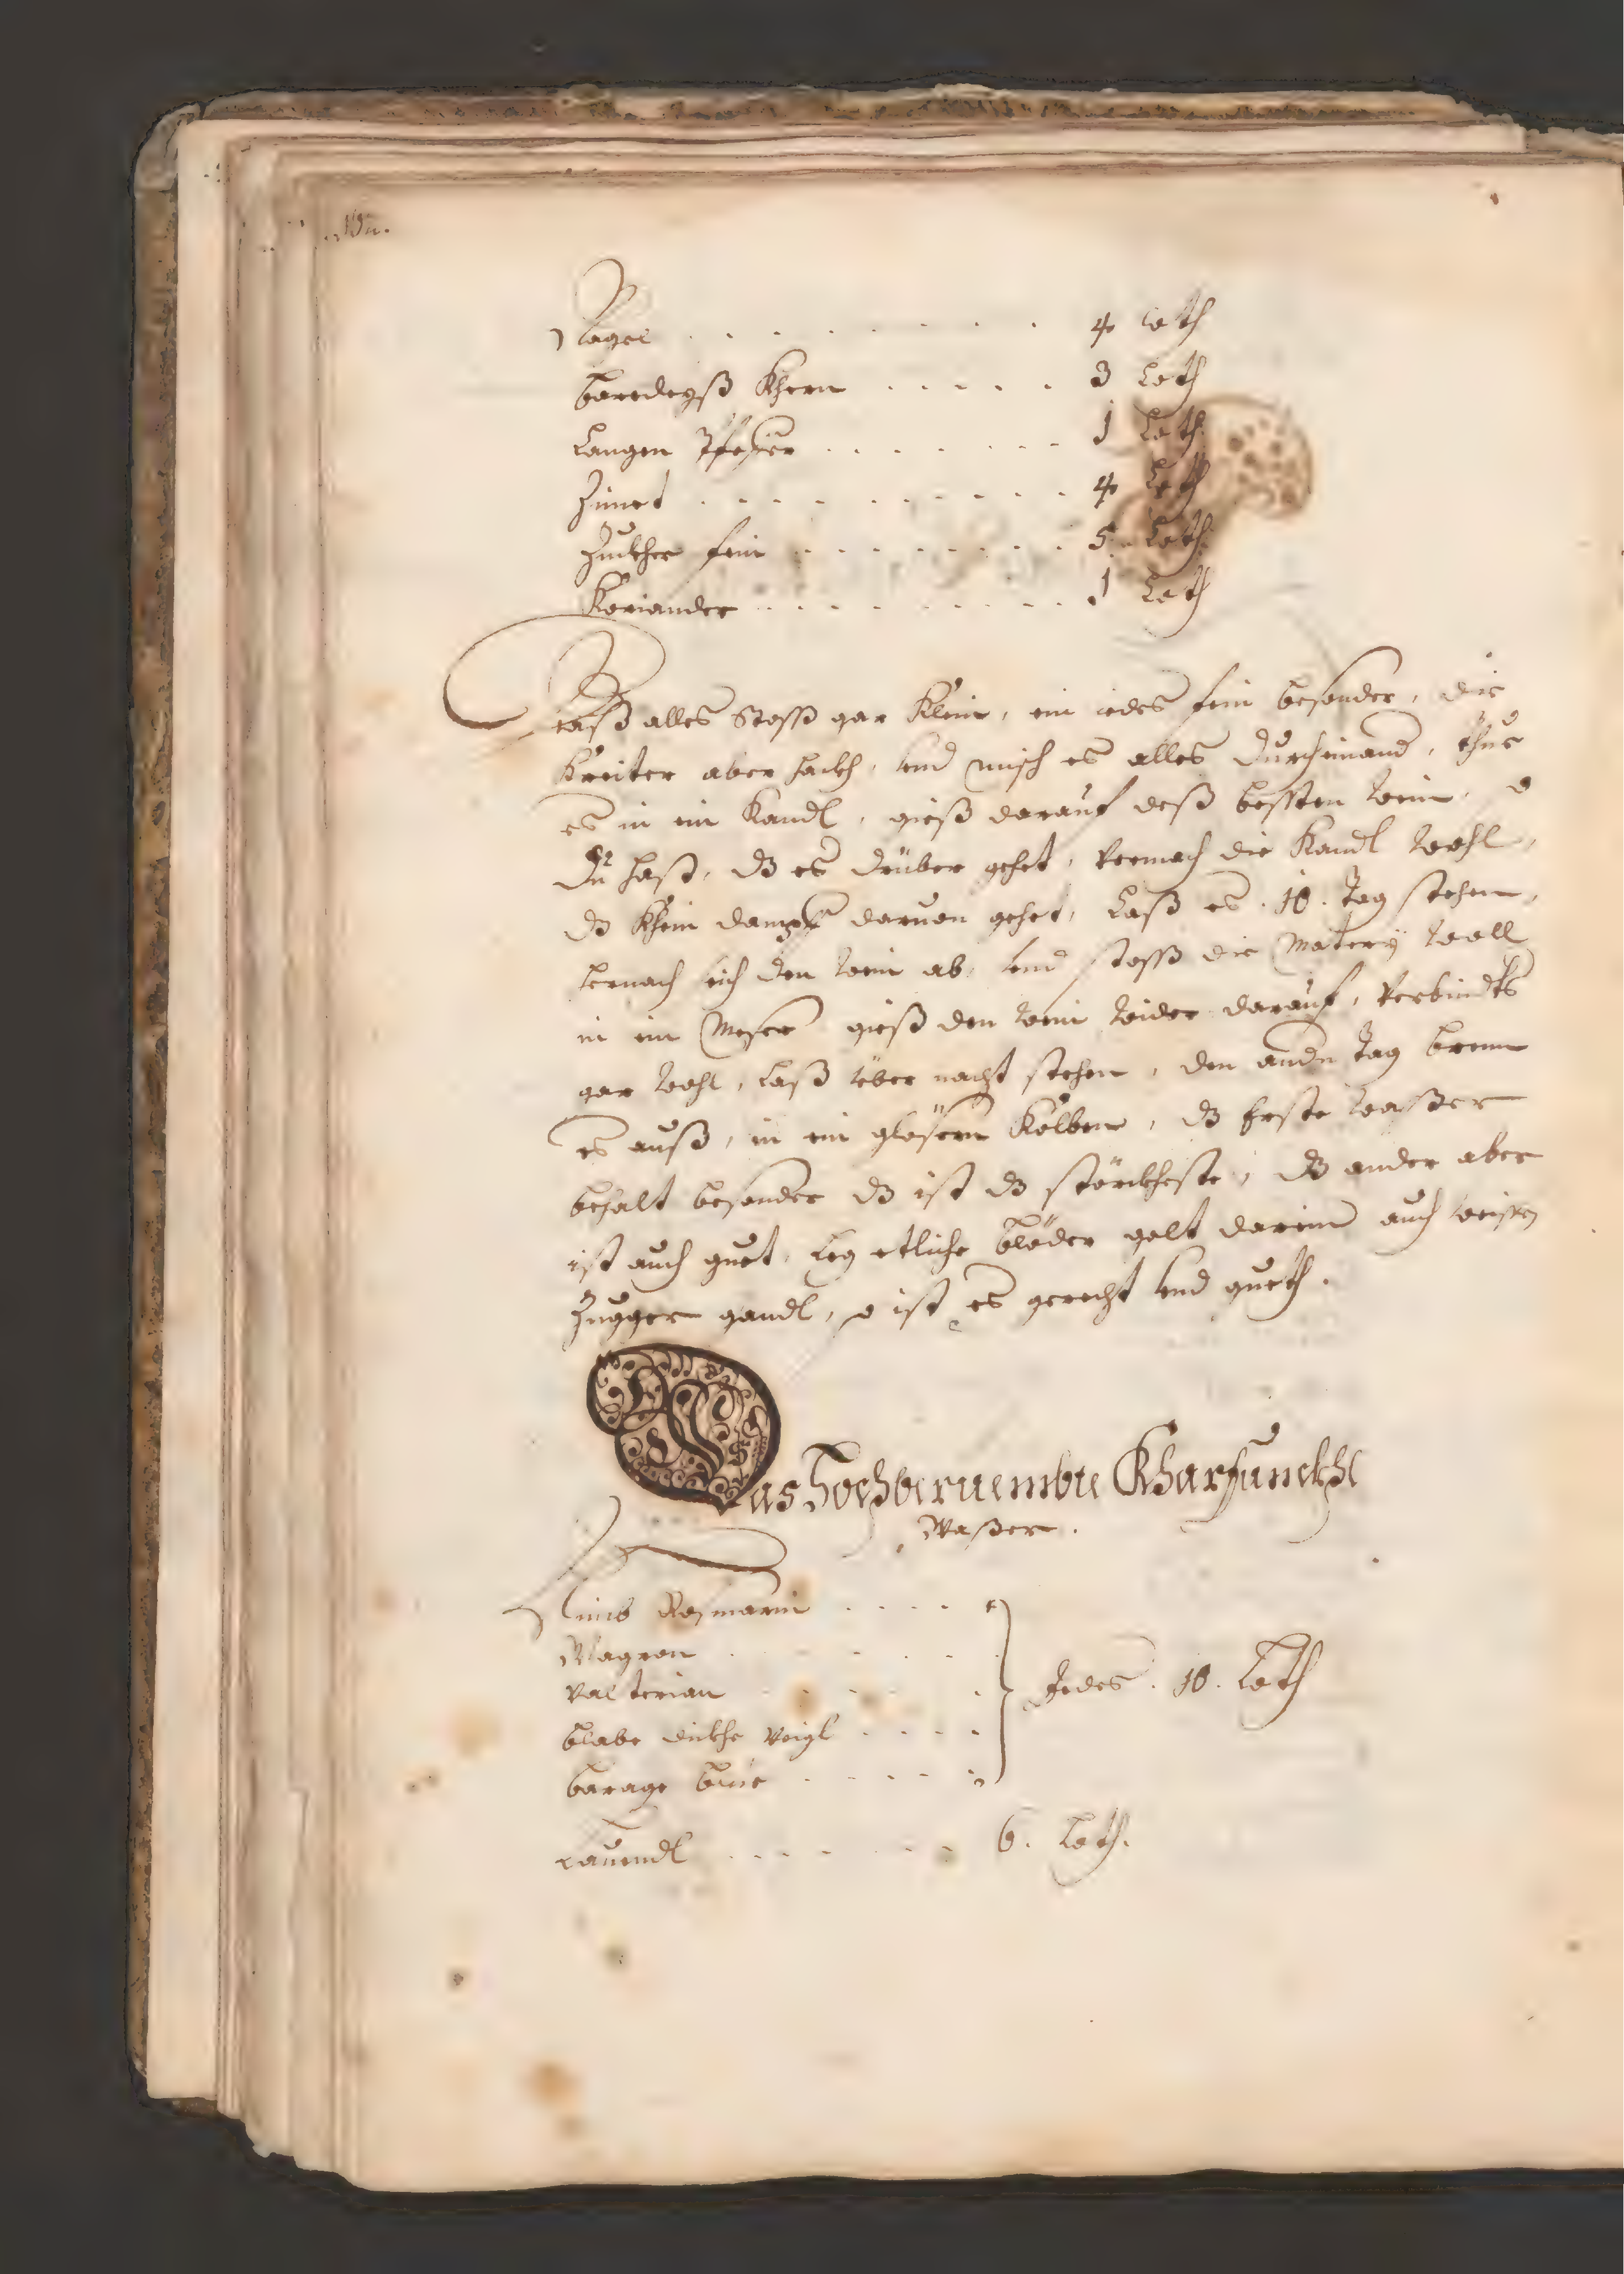 Nagel . . . . . . . . 4 Loth
Baredeyß Khern . . . . . 3 Loth
Langen Pfeffer . . . . . . . 1 Loth
Zimet . . . . . . . . . 4 Loth
Zuckher fein . . . . . . . . 5 Loth
Koriander . . . . . . . . . 1 Loth
Daß alles Stoss gar Klein, ein iedes fein besonder, die
Kreiter aber hackh, vnd misch es alles durcheinand, thue
es in ein Kandl, gieß darauf deß bessten wein, so
du hast, dz es drüber gehet, vermach die Kandl wohl,
dz Khein dampf daruon gehet, Laß es . 10 . Tag stehen,
hernach seich den wein ab, vnd stoss die Matery woll
in ein Meser gieß den wein wider darauf, verbindts
gar wohl, Laß über nacht stehen, den andn Tag brenn
es auß, in ein gläsern Kolben, dz Erste waßer
behalt besonder dz ist dz störckheste, dz ander aber
ist auch guet, Leg etliche bläder golt darein auch weissen
Zugger gandl, so ist es gerecht vnd gueth.
Das Hochberuembte Kharfunckhl
Waßer.
Nimb Rosmarin . . . .
Magron . . . . . .
Valterian . . . . . Jedes . 10 . Loth
Blabe dickhe Veigl . . . .
Barage Blüe . . . . .
Lauendl . . . . . . 6. Loth.